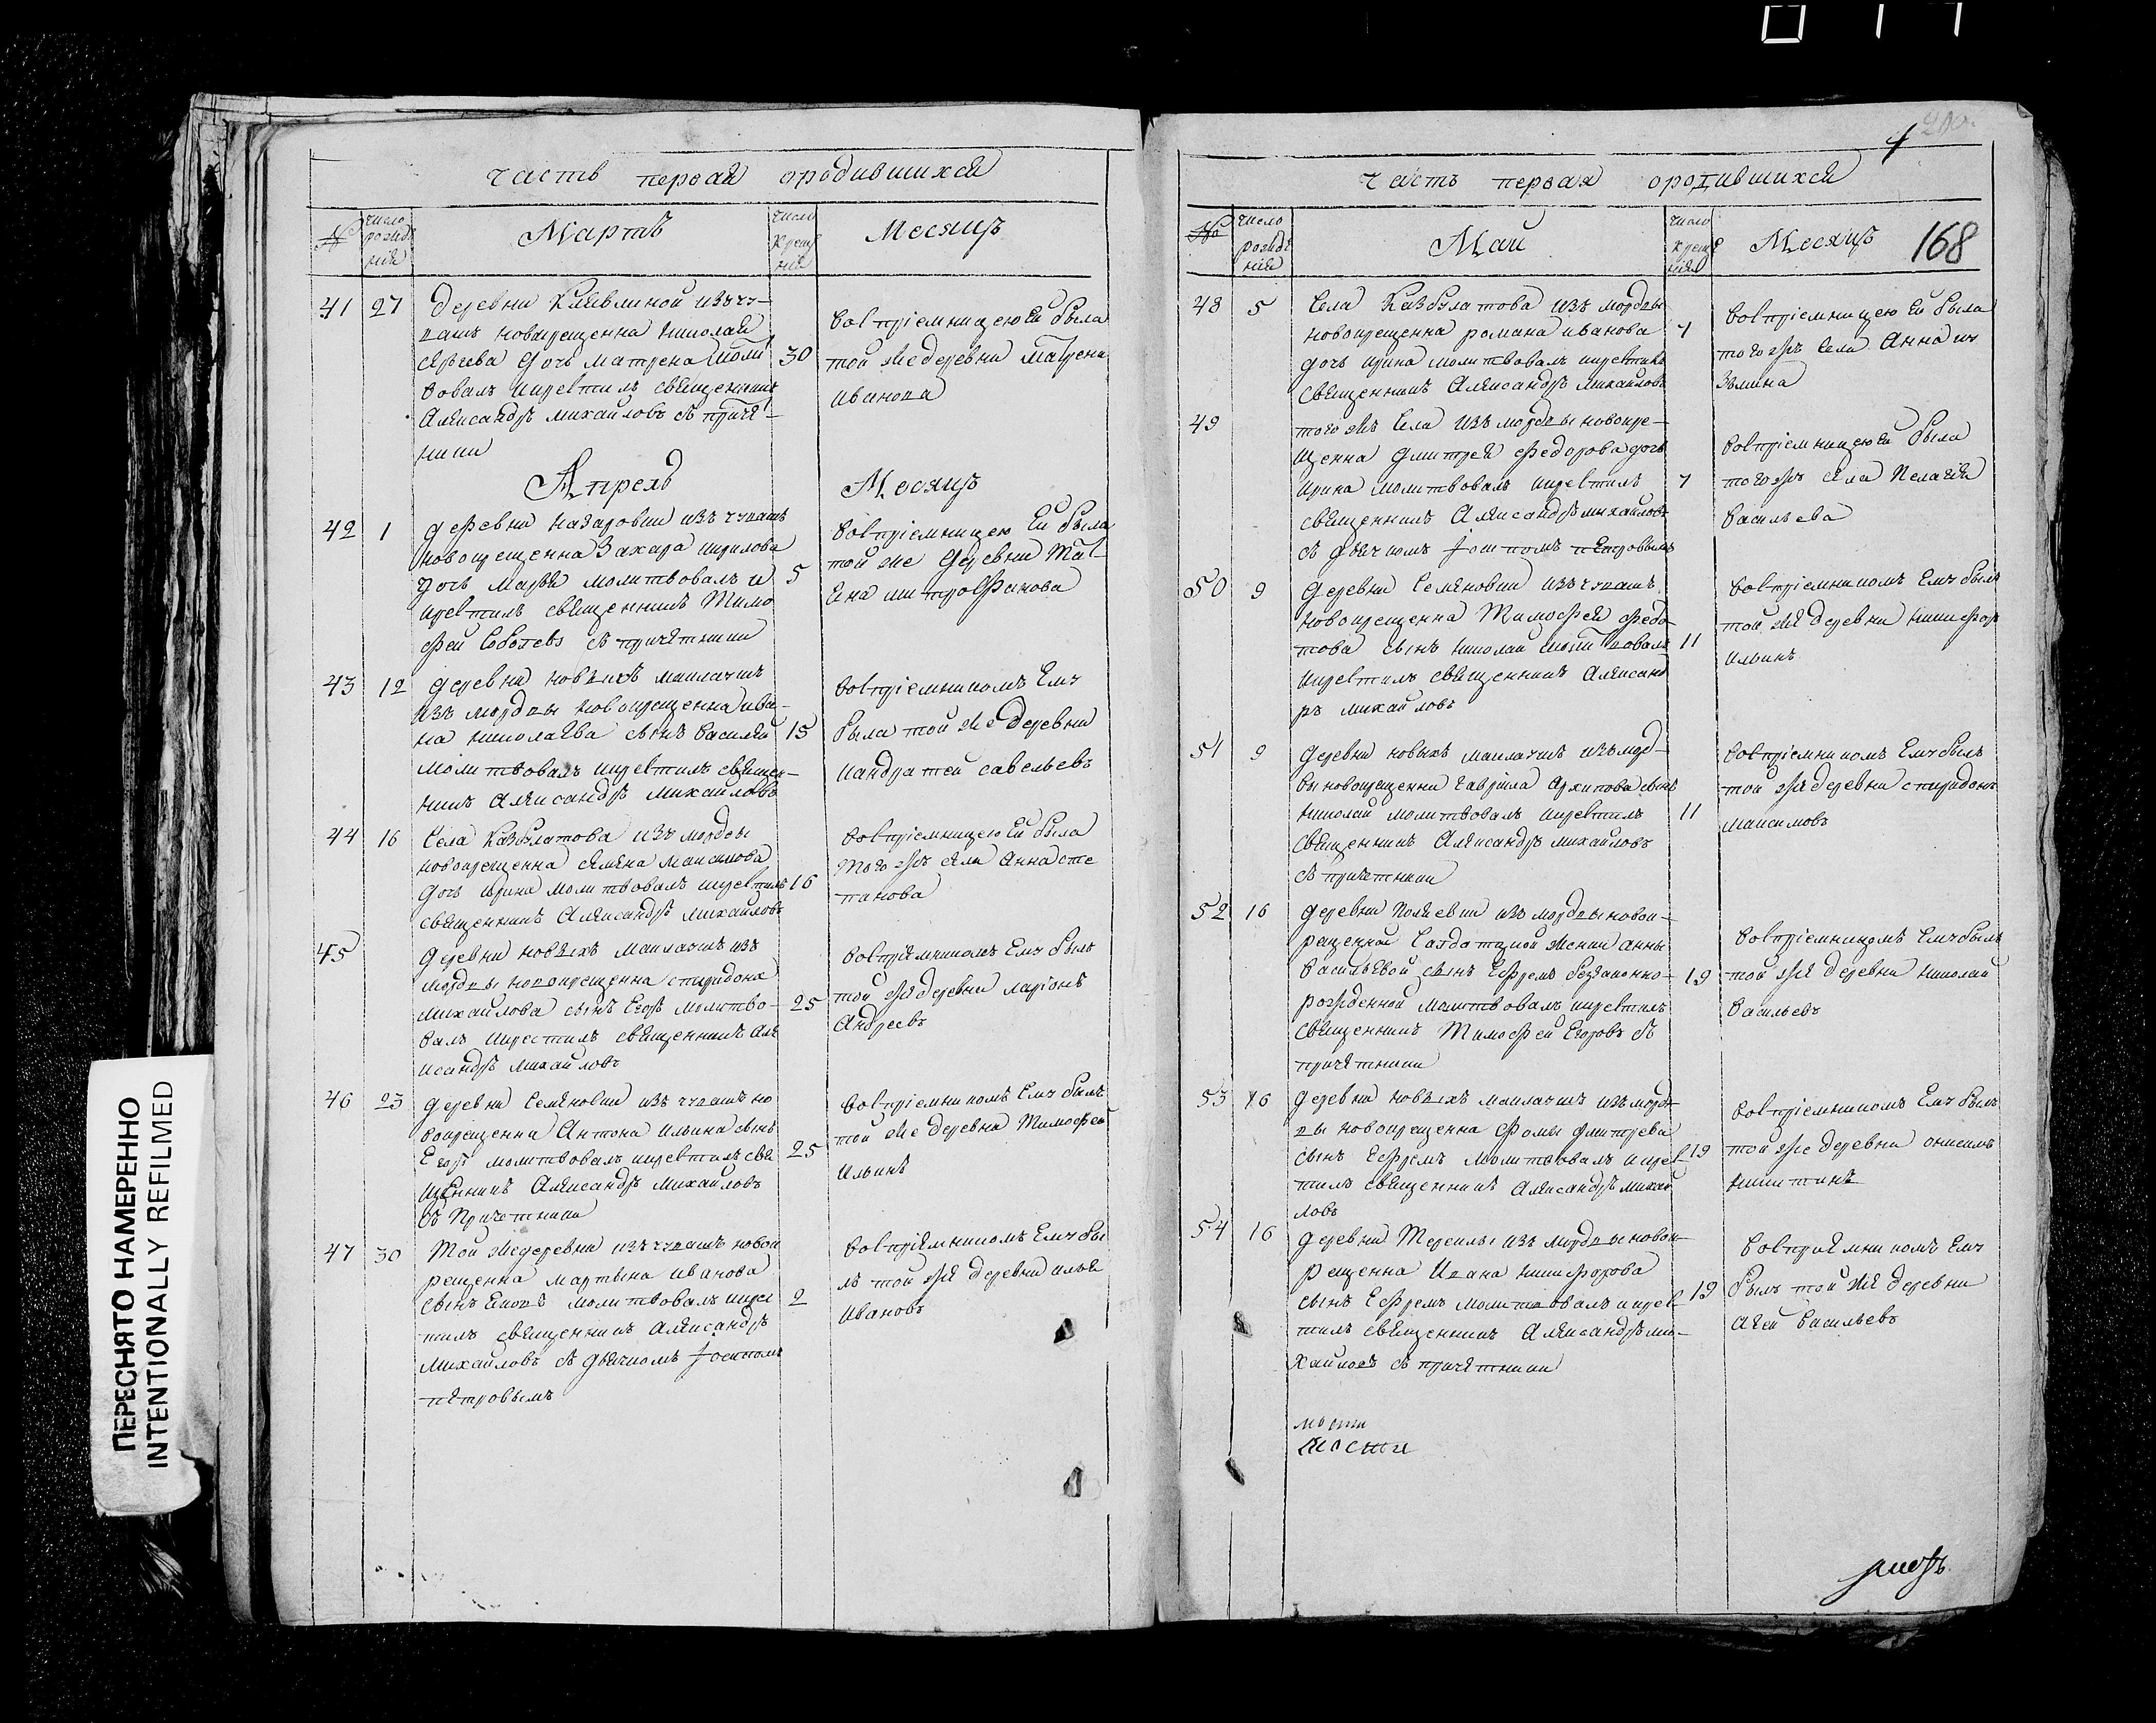 часть первая ородившихся
№
число рождения
Мартъ
число крещения
Месяцъ
41 27
деревни Клявлиной изъ чу-
вашъ новокрещенна Николая
Сергѣева дочь матрена моли
30
твовалъ икрестилъ священникъ
Александръ михайловъ съ причет-
ники
восприемницею Ей была
той же деревни матрена
иванова
Апрель Месяцъ
42 1
деревни назаровки изъ чувашъ
новокрещенна Захара кирилова
дочь марья молитвовалъ и
5
крестилъ священникъ Тимо
фей Соболевъ съ причетники
восприемницею Ей была
той же деревни
митрофанова
43 12
деревни новыхъ маклаушъ
изъ мордвы новокрещенна ива-
на николаева сынъ василей
15
молитвовалъ икрестилъ священ-
никъ Александръ михайловъ
восприемникомъ Ему
была той же деревни
кандратей савельевъ
44 16
села Казбулатова изъ мордвы
новокрещенна семена максимова
дочь ирина молитвовалъ икрестилъ
16
священникъ Александръ михайловъ
восприемницею Ей была
того жъ села Анна сте
панова
45
деревни новыхъ маклаушъ изъ
мордвы новокрещенна спиридона
михайлова сынъ Егоръ молитво-
25
валъ икрестилъ священникъ але
ксандръ михайловъ
восприемникомъ Ему былъ
той же деревни ларионъ
Андреевъ
46 23
деревни Семеновки изъ чувашъ но
вокрещенна Антона ильина сынъ
Егоръ молитвовалъ икрестилъ свя
25
щенникъ Александръ михайловъ
съ Причетники
восприемникомъ Ему былъ
той же деревни Тимофей
Ильинъ
47 30
Той же деревни изъ чувашъ новок
рещенна мартына иванова
сынъ Яковъ молитвовалъ икрес
2
тилъ священникъ александръ
Михайловъ съ дьячкомъ Iосипомъ
петровымъ
восприемникомъ Ему бы
лъ той же деревни илья
Ивановъ
4
168
часть первая ородившихся
№
число рождения
Май
число крещения
Месяцъ
48 5
Села Казбулатова изъ мордвы
новокрещенна романа иванова
7
дочь ирина молитвовалъ икрестилъ
священникъ Александръ михайловъ
восприемницею Ей была
того жъ села Анна ку
змина
49
того жъ села изъ мордвы новокре-
щенна дмитрея федорова дочь
ирина молитвовалъ икрестилъ
7
священникъ Александръ михайловъ
съ дьячкомъ Iосипомъ петровымъ
восприемницею Ей была
того жъ села Пелагия
васильева
50 9
деревни Семеновки изъ чувашъ
новокрещенна Тимофея федо
това сынъ николай молитвовалъ
11
икрестилъ священникъ александ
ръ михайловъ
восприемникомъ Ему былъ
той же деревни никифор
ильинъ
51 9
деревни новыхъ маклаушъ изъ морд-
вы новокрещенна гавриила архипова сынъ
николай молитвовалъ икрестилъ
11
священникъ Александръ михайловъ
съ причетники
восприемникомъ Ему былъ
той же деревни спиридонъ
максимовъ
52 16
деревни изъ мордвы новок-
рещенной Салдатской женки анны
васильевой сынъ Ефремъ беззаконно-
19
рожденной молитвовалъ икрестилъ
священникъ Тимофей Егоровъ съ
причетники
восприемникомъ Ему былъ
той же деревни николай
васильевъ
53 16
деревни новыхъ маклаушъ изъ морд-
вы новокрещенна Фомы дмитрева
сынъ Ефремъ молитвовалъ икрес-
19
тилъ священникъ александръ михай
ловъ
восприемникомъ Ему былъ
той же деревни онисимъ
никитинъ
54 16
деревни Тереклы изъ мордвы новок-
рещенна Ивана никифорова
сынъ Ефремъ молитвовалъ икрес-
19
тилъ священникъ александръ ми-
хайловъ съ причетники
восприемникомъ Ему
былъ той же деревни
агей васильевъ
мости
ПЕРЕСНЯТО НАМЕРЕННО
INTENTIONALLY REFILMED